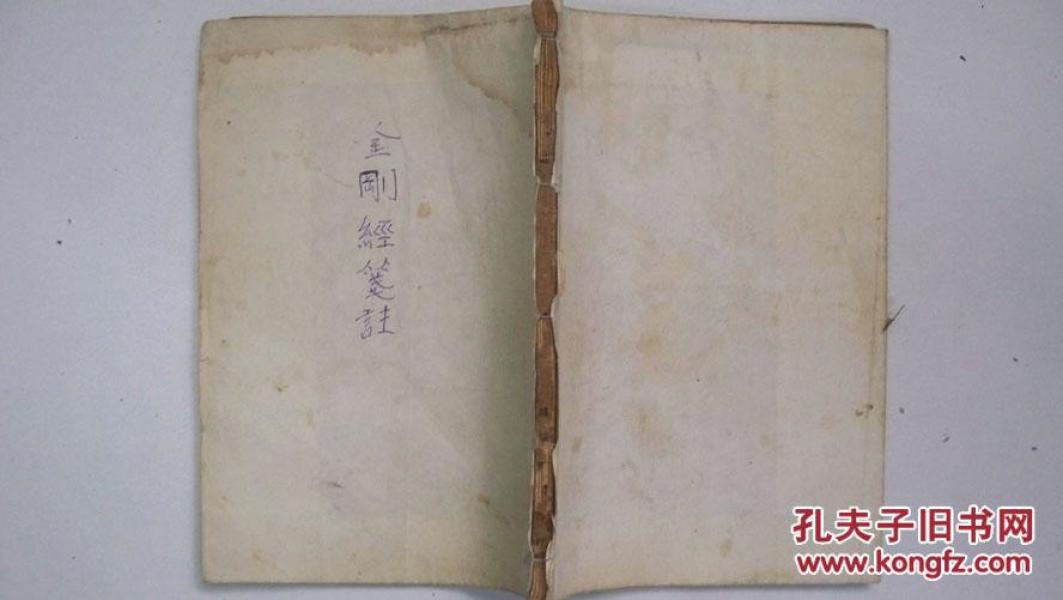 金剛經箋註
孔夫子旧书网
www.kongfz.com